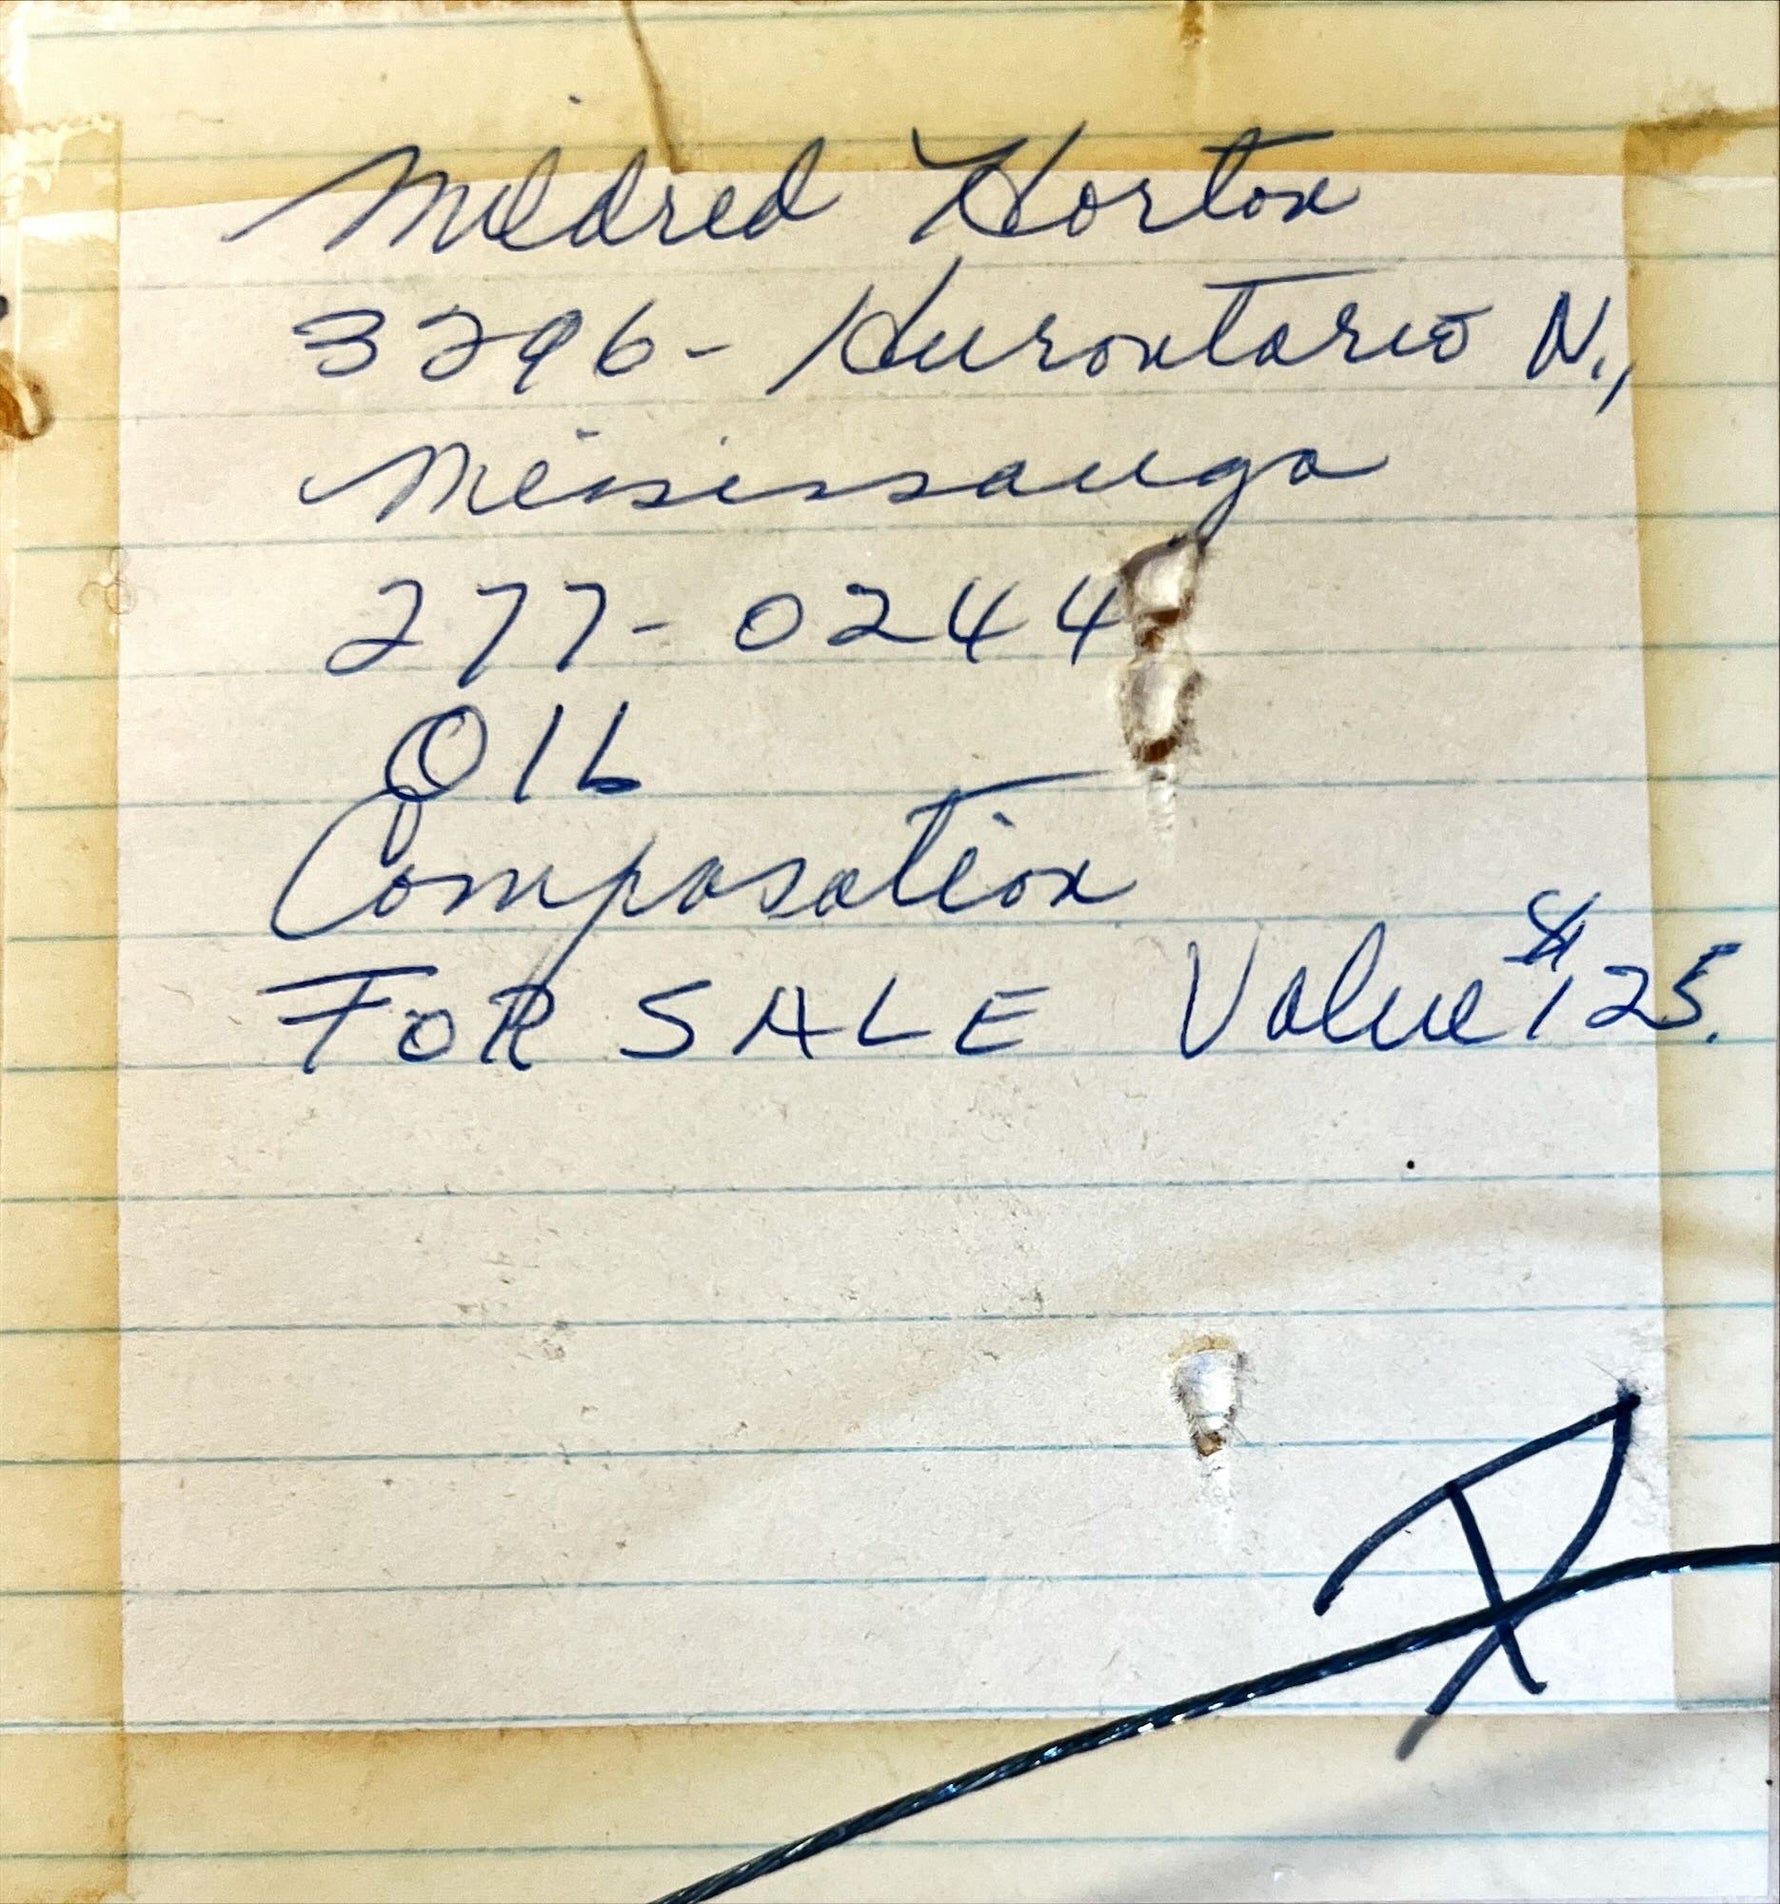 Mildred Horton
3296- Hurontario N.,
Mississauga
277-0244
OIL
Composation
FOR SALE Value $125.